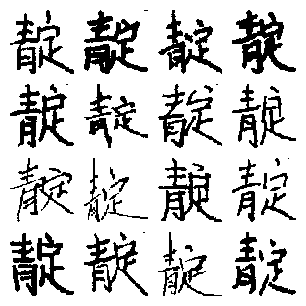 靛靛靛靛
靛靛靛靛
靛靛靛靛
靛靛靛靛